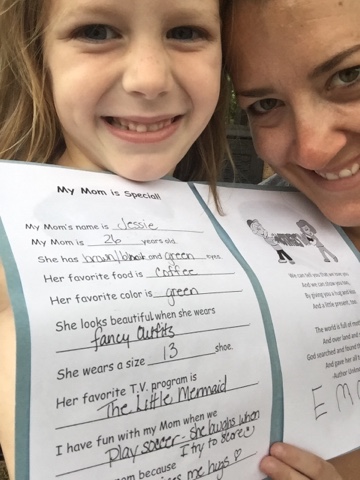 My Mom is Special!
My Mom's name is Jessie
My Mom is 26 years old.
She has brown/black and green eyes
Her favorite food is coffee
Her favorite color is green
She looks beautiful when she wears
fancy outfits
She wears a size 13 shoe.
Her favorite T.V. program is
The Little Mermaid
I have fun with my Mom when we
play soccer. She laughs when
I try to score
mom because
me hugs
We can tell you
And we can
By giving you a hug
And a little present, too.
The world is full of
And over land and
God searched and found
And gave her all
-Author Unkn
E M